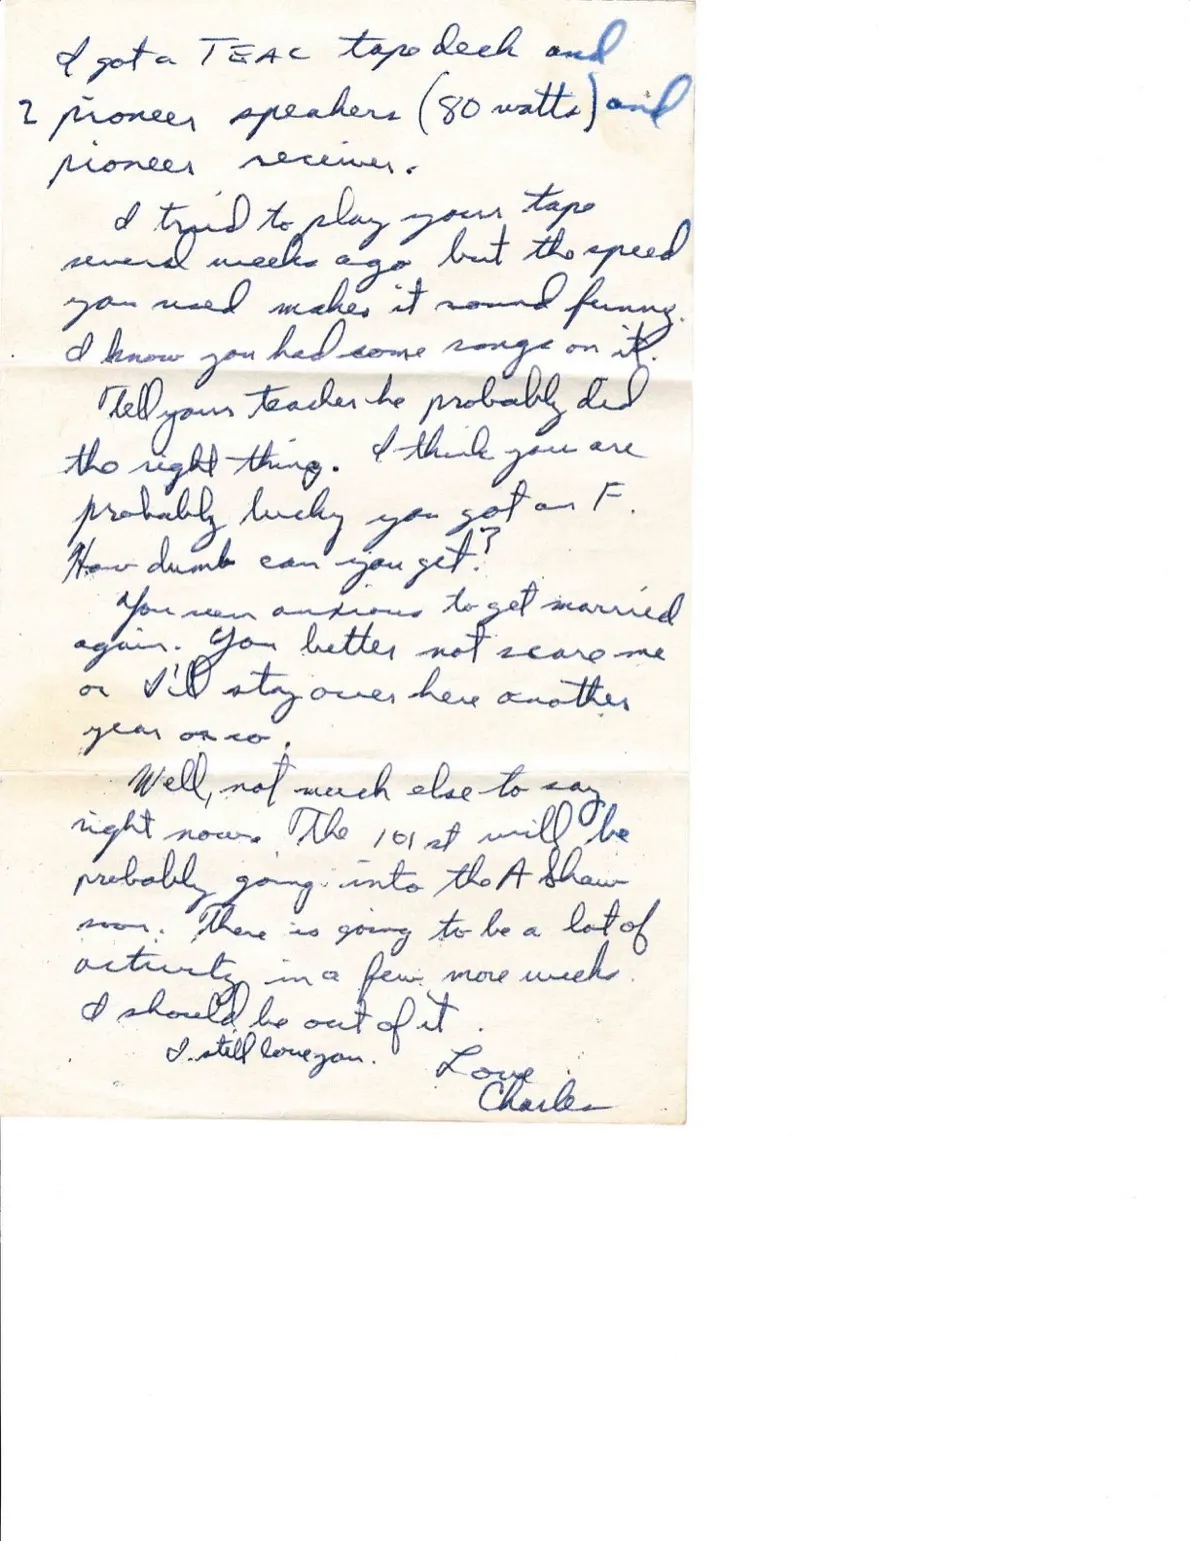 I got a TEAC tape deck and
2 pioneer speakers (80 watts) and
pioneer receiver.
I tried to play your tape
several weeks ago but the speed
you used makes it sound funny.
I know you had some songs on it.
Tell your teacher he probably did
the right thing. I think you are
probably lucky you got an F.
How dumb can you get?
You seem anxious to get married
again. You better not scare me
or I'll stay over here another
year or so.
Well, not much else to say
right now. The 101st will be
probably going into the A Shaw
soon. There is going to be a lot of
activity in a few more weeks.
I should be out of it.
I still love you.
Love
Charles